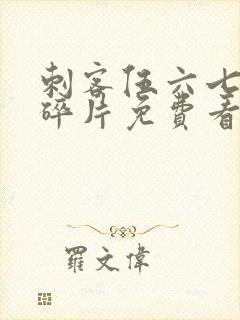 刺客伍六七
碎片免費看
羅文偉